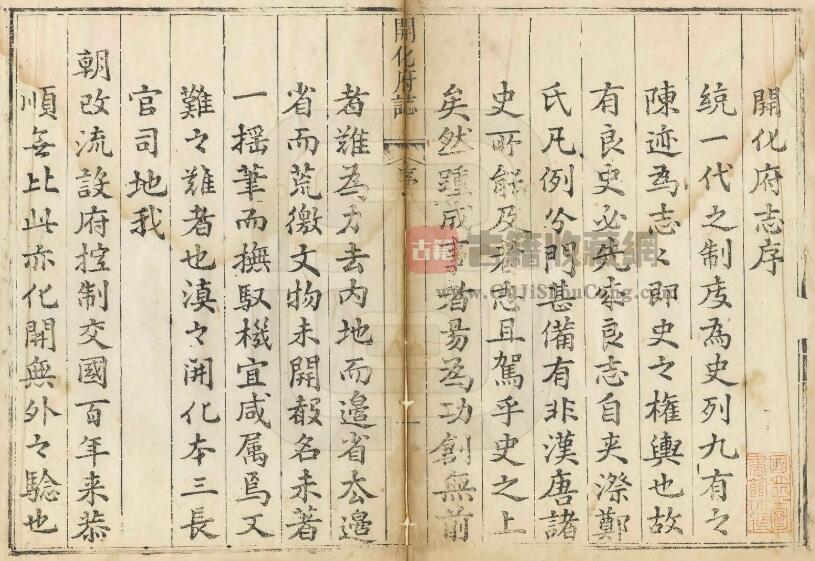 開化府志序
統一代之制度為史列九有之
陳迹為志々即史之權輿也故
有良史必先求良志自夾漈鄭
氏凡例分門甚備有非漢唐諸
史所能及者志且駕乎史之上
矣然踵成事者易為功創無前
開化府誌
序
一
者難為力去內地而邊省去邊
省而荒徼文物未開聲名未著
一搖筆而撫馭機宜咸属焉又
難之難者也滇之開化本三長
官司地我
朝改流設府控制交國百年來恭
順無比此亦化開無外之驗也
古籍
古籍收藏網
www.GuJiShouCang.com